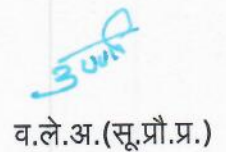 व.ले.अ.(सू.प्रौ.प्र.)